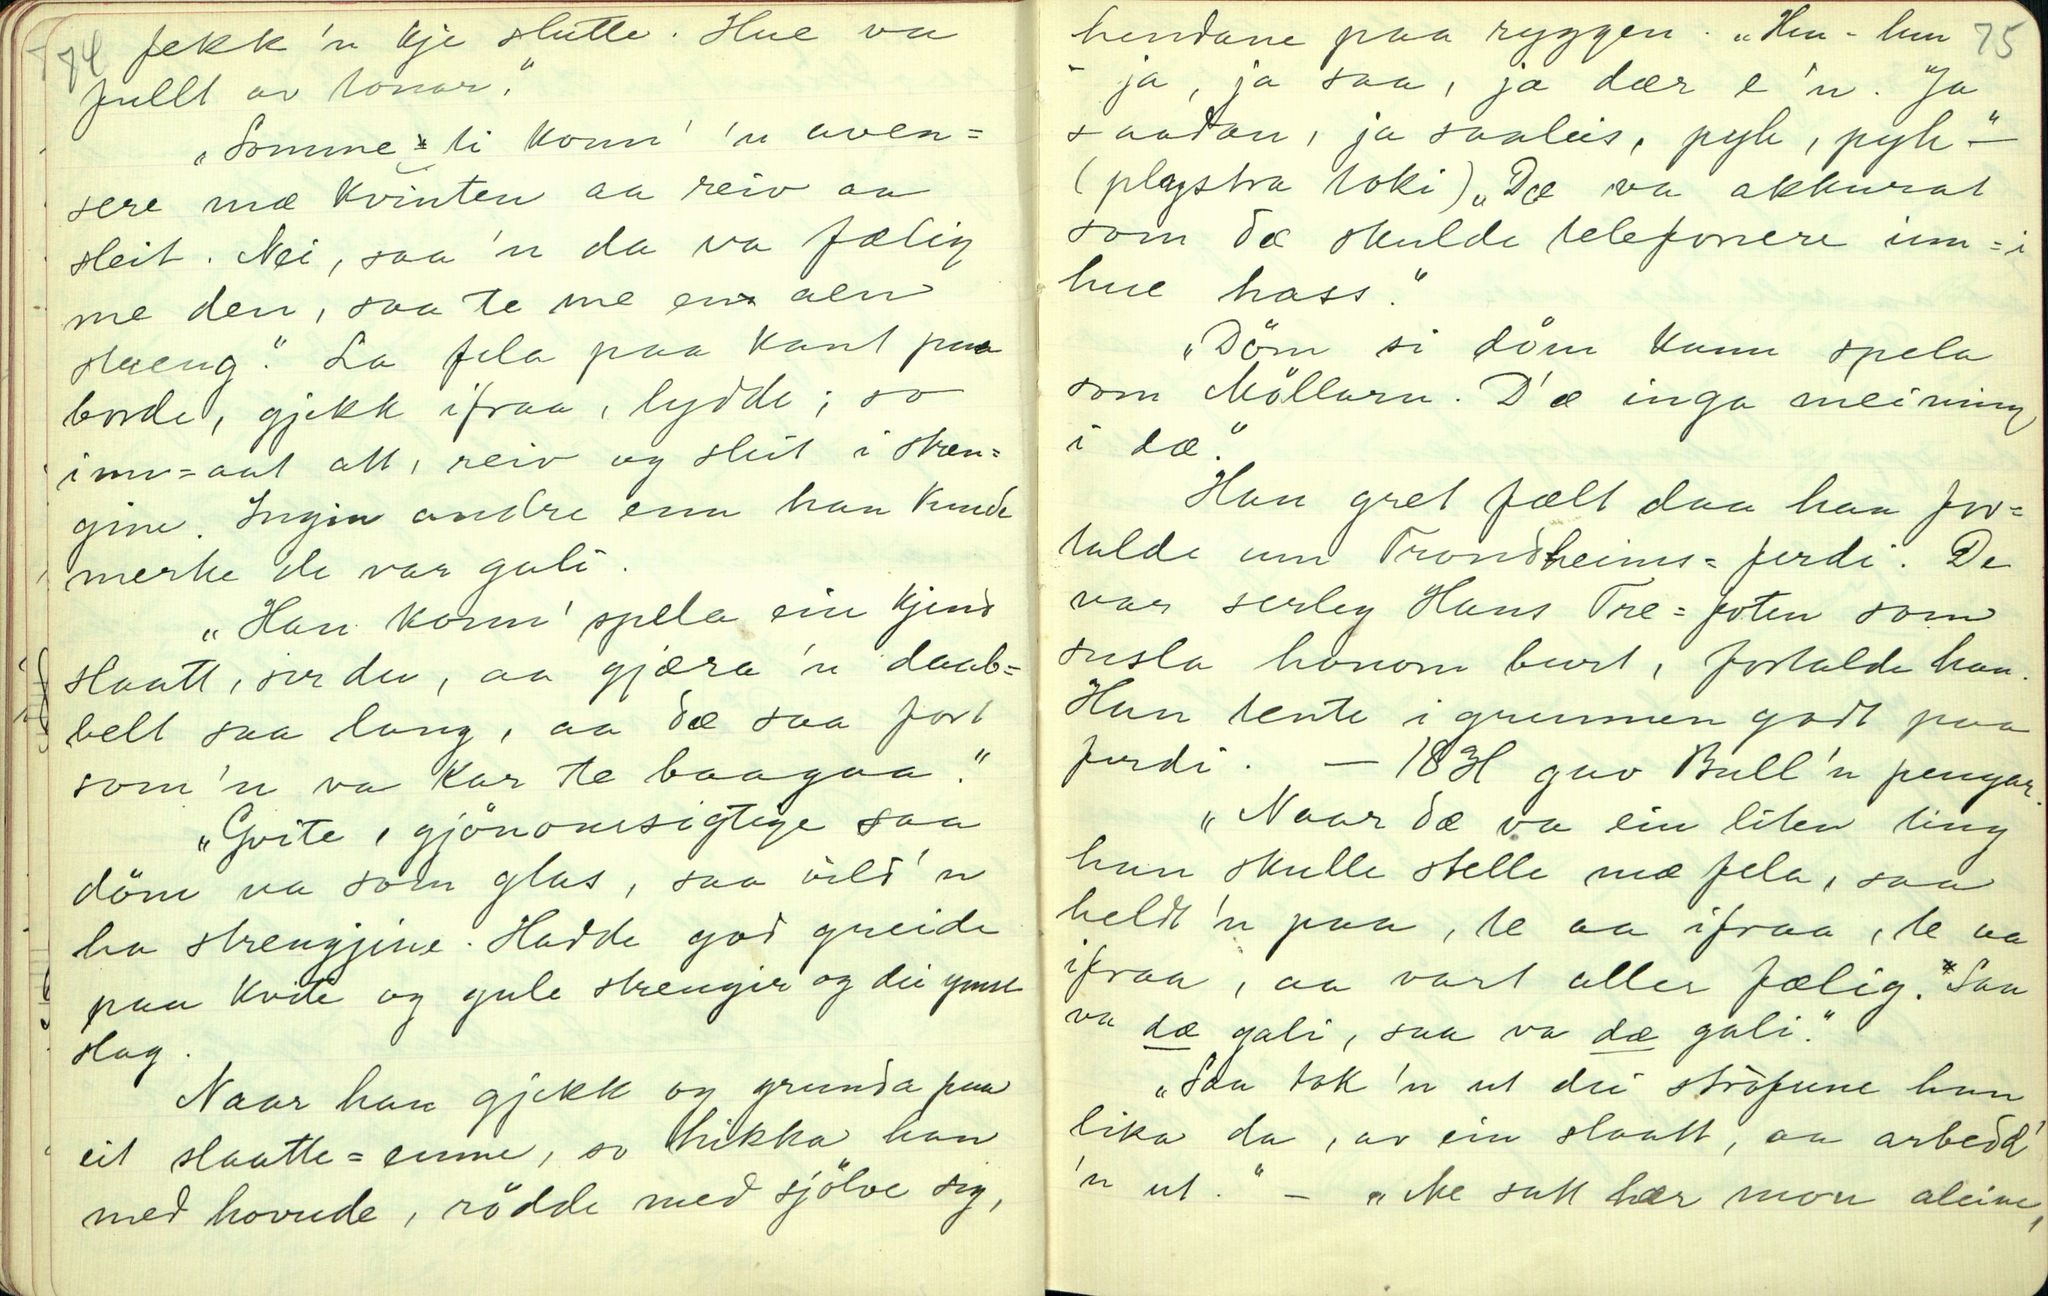 74
fekk 'n kje slutte. Hue va
fullt av tonar."
„Somme=ti konn' 'n aven=
sere mæ kvinten aa reiv aa
sleit. Nei, saa 'n da va fælig
me den, saa te me en aen
stræng." La fela paa kant paa
borde, gjekk ifraa, lydde; so
inn=aat att, reiv og sleit i stræn=
gine. Ingin andre enn han kunde
merke de var gali.
„Han konn' spela ein kjend
slaatt, ser du, aa gjæra 'n daab=
belt saa lang, aa dæ saa fort
som 'n va kar te baagaa."
„Gvite, gjönomsigtige saa
döm va som glas, saa vild 'n
ha strengjine. Hadde god greide
paa kvite og gule strengir og dei ymse
slag.
Naar han gjekk og grunda paa
eit slaatte=emne, so hikka han
med hovude, rödde med sjölve sig,
75
hendane paa ryggen. „Hm - hm
- ja, ja saa, ja dær e 'n. Ja
saadan, ja saaleis, pyh, pyh" —
(plystra toki) „Dæ va akkurat
som dæ skulde telefonere inn=i
hue hass."
„Döm si döm kann spela
som Möllarn. D'æ inga meining
i dæ."
Han gret fælt daa han for=
talde um Trondheims=ferdi. De
var serleg Hans Tre=foten som
susla honom burt, fortalde han.
Han tente i grunnen godt paa
ferdi. — 1831 gav Bull 'n pengar.
„Naar dæ va ein liten ting
han skulle stelle mæ fela, saa
heldt 'n paa, te aa ifraa, te aa
ifraa, aa vart aller fælig. Saa
va dæ gali, saa va dæ gali."
„Saa tok 'n ut dei ströfune han
lika da, av ein slaatt, aa arbedd'
'n ut." — „Me satt hær mon aleine,